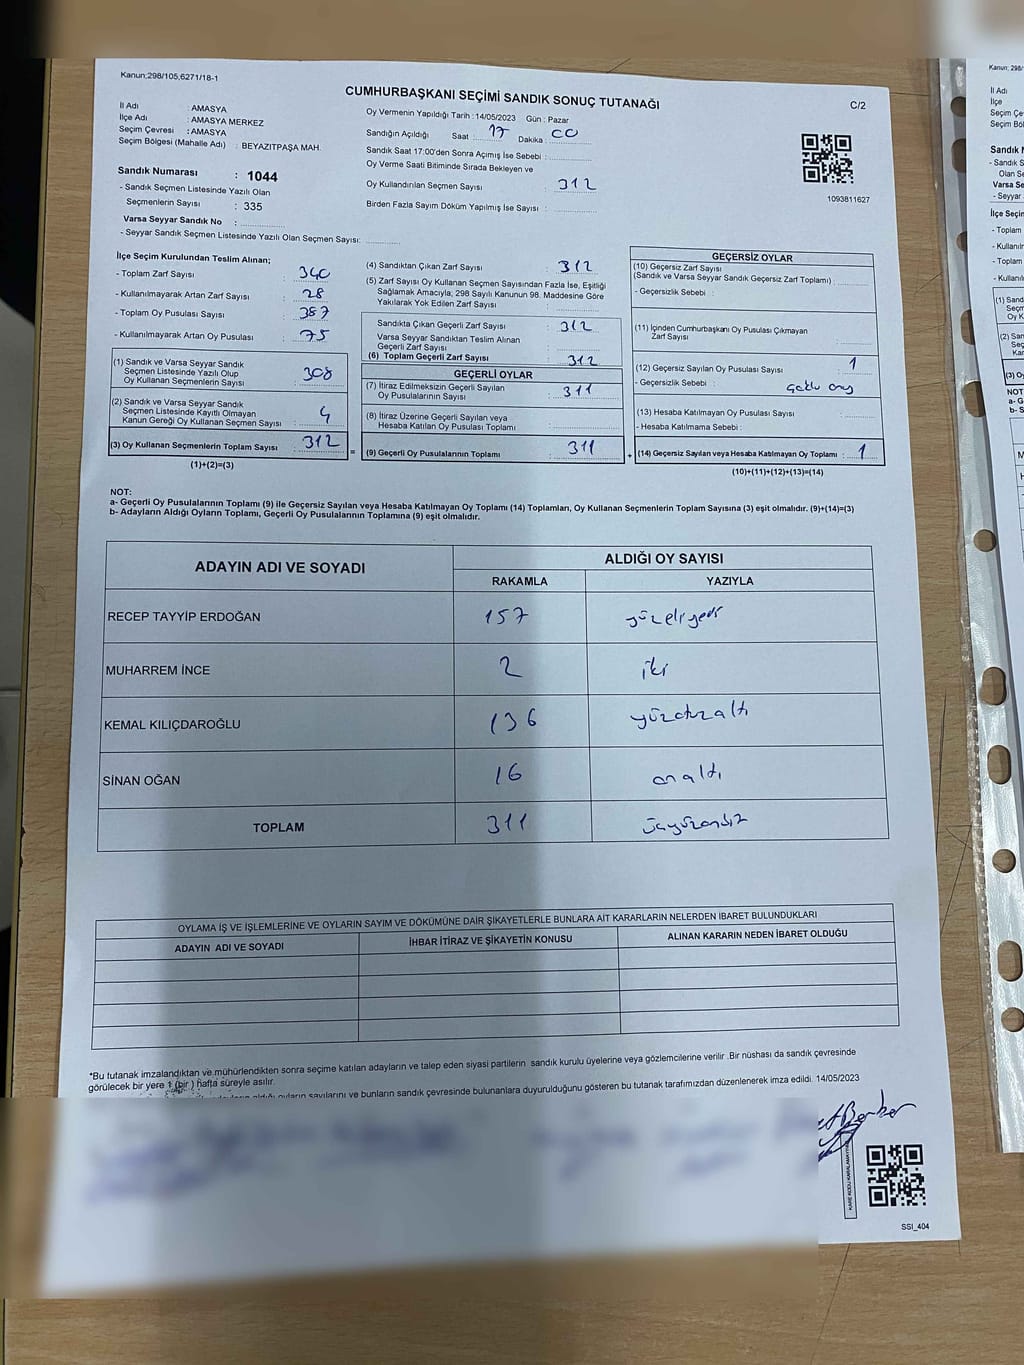 Kanun;298/105,6271/18-1
CUMHURBAŞKANI SEÇİMİ SANDIK SONUÇ TUTANAĞI
C/2
İl Adı : AMASYA
İlçe Adı : AMASYA MERKEZ
Seçim Çevresi : AMASYA
Seçim Bölgesi (Mahalle Adı) : BEYAZITPAŞA MAH.
Sandık Numarası : 1044
- Sandık Seçmen Listesinde Yazılı Olan
Seçmenlerin Sayısı : 335
Varsa Seyyar Sandık No :
- Seyyar Sandık Seçmen Listesinde Yazılı Olan Seçmen Sayısı:
Oy Vermenin Yapıldığı Tarih : 14/05/2023 Gün : Pazar
Sandığın Açıldığı Saat : 17 Dakika : 00
Sandık Saat 17:00'den Sonra Açımış İse Sebebi :
Oy Verme Saati Bitiminde Sırada Bekleyen ve
Oy Kullandırılan Seçmen Sayısı : 312
Birden Fazla Sayım Döküm Yapılmış İse Sayısı :
1093811627
İlçe Seçim Kurulundan Teslim Alınan;
- Toplam Zarf Sayısı : 340
- Kullanılmayarak Artan Zarf Sayısı : 28
- Toplam Oy Pusulası Sayısı : 387
- Kullanılmayarak Artan Oy Pusulası : 75
(1) Sandık ve Varsa Seyyar Sandık
Seçmen Listesinde Yazılı Olup
Oy Kullanan Seçmenlerin Sayısı : 308
(2) Sandık ve Varsa Seyyar Sandık
Seçmen Listesinde Kayıtlı Olmayan
Kanun Gereği Oy Kullanan Seçmen Sayısı : 4
(3) Oy Kullanan Seçmenlerin Toplam Sayısı : 312
(1)+(2)=(3)
(4) Sandıktan Çıkan Zarf Sayısı : 312
(5) Zarf Sayısı Oy Kullanan Seçmen Sayısından Fazla İse, Eşitliği
Sağlamak Amacıyla, 298 Sayılı Kanunun 98. Maddesine Göre
Yakılarak Yok Edilen Zarf Sayısı :
Sandıkta Çıkan Geçerli Zarf Sayısı : 312
Varsa Seyyar Sandıktan Teslim Alınan
Geçerli Zarf Sayısı :
(6) Toplam Geçerli Zarf Sayısı : 312
GEÇERLİ OYLAR
(7) İtiraz Edilmeksizin Geçerli Sayılan
Oy Pusulalarının Sayısı : 311
(8) İtiraz Üzerine Geçerli Sayılan veya
Hesaba Katılan Oy Pusulaları Toplamı :
= (9) Geçerli Oy Pusulalarının Toplamı : 311
GEÇERSİZ OYLAR
(10) Geçersiz Zarf Sayısı
(Sandık ve Varsa Seyyar Sandık Geçersiz Zarf Toplamı) :
- Geçersizlik Sebebi :
(11) İçinden Cumhurbaşkanı Oy Pusulası Çıkmayan
Zarf Sayısı :
(12) Geçersiz Sayılan Oy Pusulası Sayısı : 1
- Geçersizlik Sebebi :
(13) Hesaba Katılmayan Oy Pusulası Sayısı :
- Hesaba Katılmama Sebebi :
+ (14) Geçersiz Sayılan veya Hesaba Katılmayan Oy Toplamı : 1
(10)+(11)+(12)+(13)=(14)
NOT:
a- Geçerli Oy Pusulalarının Toplamı (9) ile Geçersiz Sayılan veya Hesaba Katılmayan Oy Toplamı (14) Toplamları, Oy Kullanan Seçmenlerin Toplam Sayısına (3) eşit olmalıdır. (9)+(14)=(3)
b- Adayların Aldığı Oyların Toplamı, Geçerli Oy Pusulalarının Toplamına (9) eşit olmalıdır.
ADAYIN ADI VE SOYADI ALDIĞI OY SAYISI
RAKAMLA YAZIYLA
RECEP TAYYİP ERDOĞAN 157 yüzelliyedi
MUHARREM İNCE 2 iki
KEMAL KILIÇDAROĞLU 136 yüzotuzaltı
SİNAN OĞAN 16 onaltı
TOPLAM 311 üçyüzonbir
OYLAMA İŞ VE İŞLEMLERİNE VE OYLARIN SAYIM VE DÖKÜMÜNE DAİR ŞİKAYETLERLE BUNLARA AİT KARARLARIN NELERDEN İBARET BULUNDUKLARI
ADAYIN ADI VE SOYADI İHBAR İTİRAZ VE ŞİKAYETİN KONUSU ALINAN KARARIN NEDEN İBARET OLDUĞU
*Bu tutanak imzalandıktan ve mühürlendikten sonra seçime katılan adayların ve talep eden siyasi partilerin sandık kurulu üyelerine veya gözlemcilerine verilir .Bir nüshası da sandık çevresinde
görülecek bir yere 1 (bir ) hafta süreyle asılır.
oyların sayılarını ve bunların sandık çevresinde bulunanlara duyurulduğunu gösteren bu tutanak tarafımızdan düzenlenerek imza edildi. 14/05/2023
SSI_404